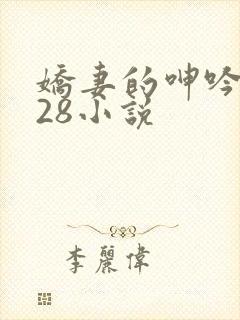 嬌妻的呻吟
28小說
李麗偉